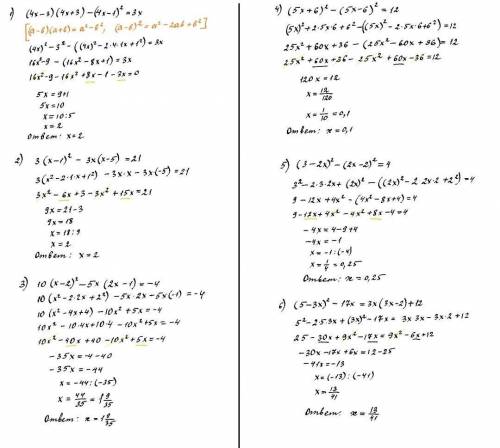 1) (4x-3)(4x+3)-(4x-1)²=3x
[(a-b)(a+b)=a²-b², (a-b)²=a²-2ab+b²]
(4x)²-3²-((4x)²-2·4x·1+1²)=3x
16x²-9-(16x²-8x+1)=3x
16x²-9-16x²+8x-1-3x=0
5x=9+1
5x=10
x=10:5
x=2
Ответ: x=2
2) 3(x-1)²-3x(x-5)=21
3(x²-2·1·x+1²)-3x·x-3x·(-5)=21
3x²-6x+3-3x²+15x=21
9x=21-3
9x=18
x=18:9
x=2
Ответ: x=2
3) 10(x-2)²-5x(2x-1)=-4
10(x²-2·2x+2²)-5x·2x-5x(-1)=-4
10(x²-4x+4)-10x²+5x=-4
10x²-10·4x+10·4-10x²+5x=-4
10x²-40x+40-10x²+5x=-4
-35x=-4-40
-35x=-44
x=-44:(-35)
x=44/35=1 9/35
Ответ: x=1 9/35
4) (5x+6)²-(5x-6)²=12
(5x)²+2·5x·6+6²-((5x)²-2·5x·6+6²)=12
25x²+60x+36-(25x²-60x+36)=12
25x²+60x+36-25x²+60x-36=12
120x=12
x=12/120
x=1/10=0,1
Ответ: x=0,1
5) (3-2x)²-(2x-2)²=4
3²-2·3·2x+(2x)²-((2x)²-2·2x·2+2²)=4
9-12x+4x²-(4x²-8x+4)=4
9-12x+4x²-4x²+8x-4=4
-4x=4-9+4
-4x=-1
x=-1:(-4)
x=1/4=0,25
Ответ: x=0,25
6) (5-3x)²-17x=3x(3x-2)+12
5²-2·5·3x+(3x)²-17x=3x·3x-3x·2+12
25-30x+9x²-17x=9x²-6x+12
-30x-17x+6x=12-25
-41x=-13
x=(-13):(-41)
x=13/41
Ответ: x=13/41